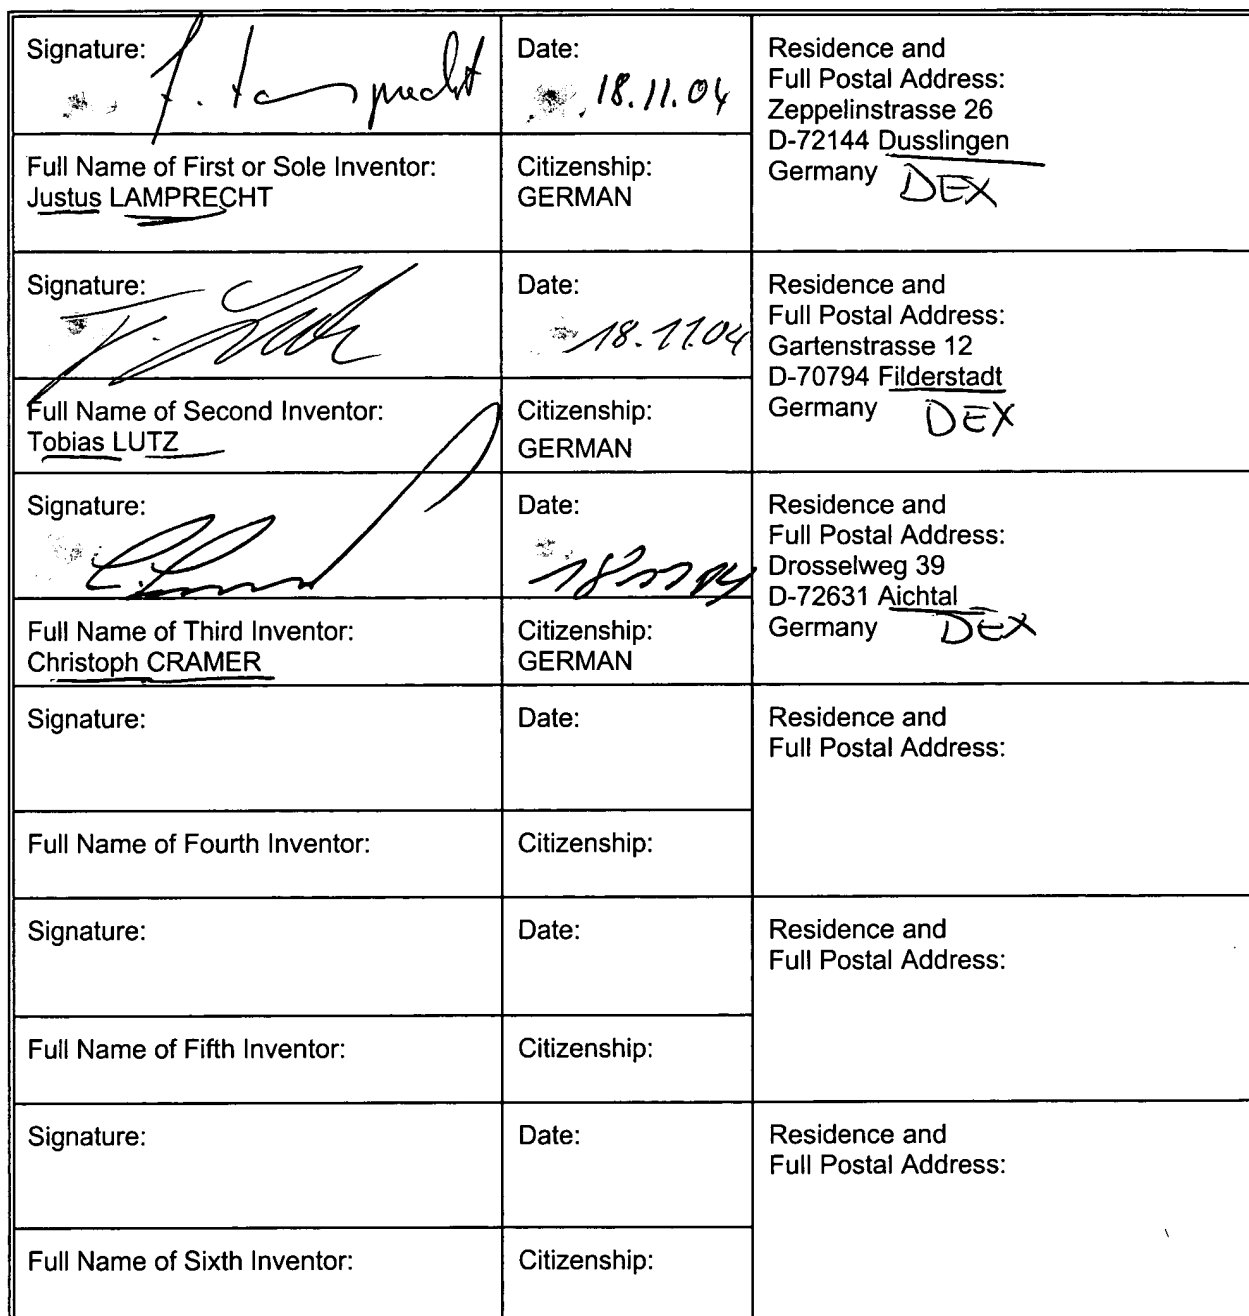 Signature: J. Lamprecht
Date:
18.11.04
Residence and
Full Postal Address:
Zeppelinstrasse 26
D-72144 Dusslingen
Germany DEX
Full Name of First or Sole Inventor:
Justus LAMPRECHT
Citizenship:
GERMAN
Signature:
T. Lutz
Date:
18.11.04
Residence and
Full Postal Address:
Gartenstrasse 12
D-70794 Filderstadt
Germany DEX
Full Name of Second Inventor:
Tobias LUTZ
Citizenship:
GERMAN
Signature:
Date:
18 11 04
Residence and
Full Postal Address:
Drosselweg 39
D-72631 Aichtal
Germany DEX
Full Name of Third Inventor:
Christoph CRAMER
Citizenship:
GERMAN
Signature:
Date:
Residence and
Full Postal Address:
Full Name of Fourth Inventor:
Citizenship:
Signature:
Date:
Residence and
Full Postal Address:
Full Name of Fifth Inventor:
Citizenship:
Signature:
Date:
Residence and
Full Postal Address:
Full Name of Sixth Inventor:
Citizenship: